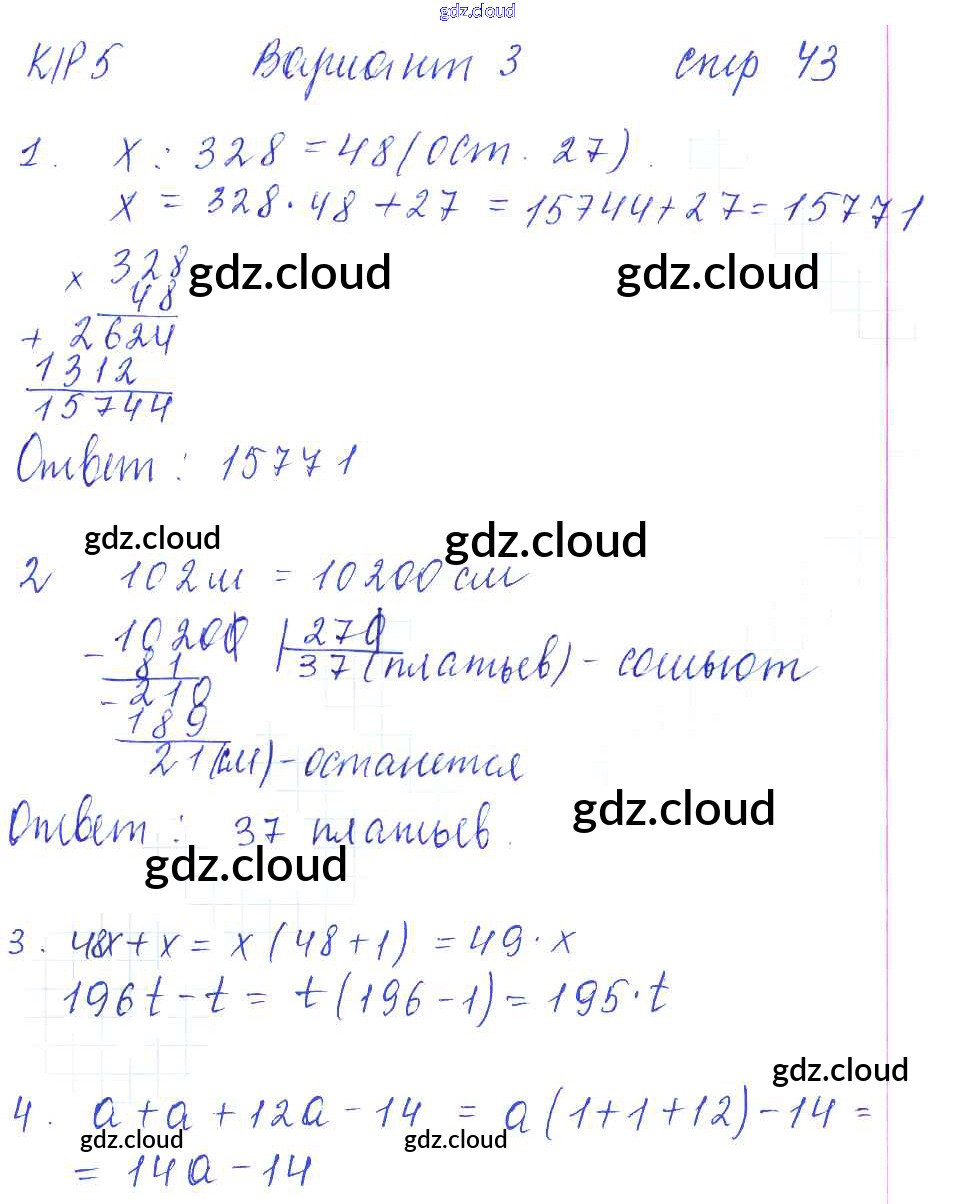 gdz.cloud
К/Р 5 Вариант 3 стр 43
1. x : 328 = 48 (ост. 27).
x = 328 · 48 + 27 = 15744 + 27 = 15771
gdz.cloud gdz.cloud
× 328
48
+ 2624
1312
15744
Ответ : 15771
gdz.cloud gdz.cloud
2 102 м = 10200 см
- 10200 | 270
81 37 (платьев) - сошьют
- 210
189
21 (см) - останется
gdz.cloud
Ответ : 37 платьев.
gdz.cloud
3. 48x + x = x (48 + 1) = 49 · x
196t - t = t (196 - 1) = 195 · t
gdz.cloud
4. a + a + 12a - 14 = a (1 + 1 + 12) - 14 =
gdz.cloud gdz.cloud
= 14a - 14